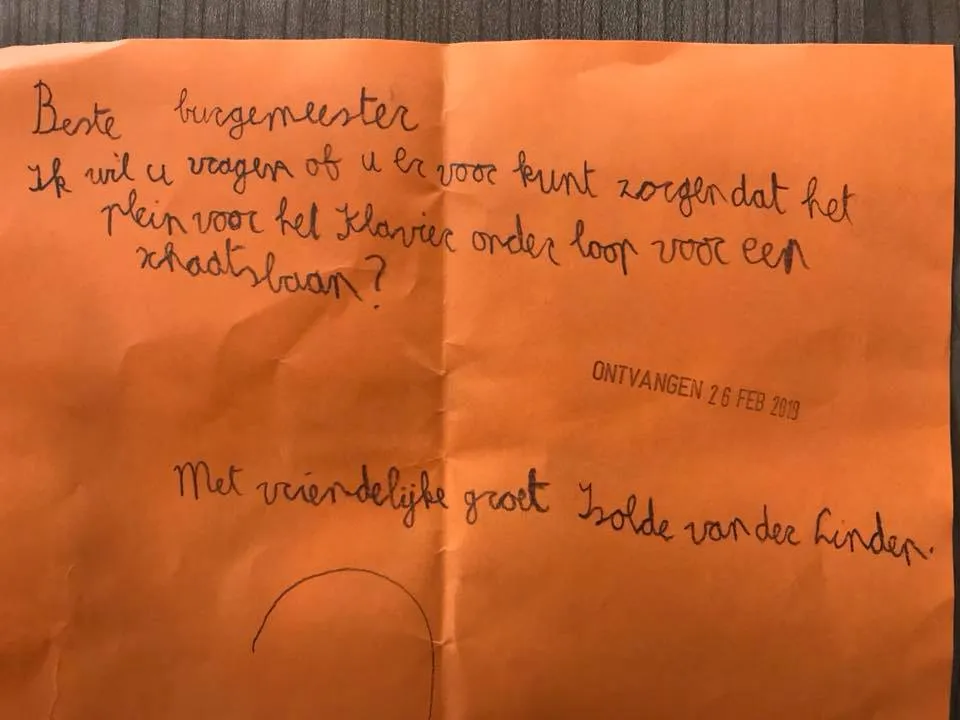 Beste burgemeester
Ik wil u vragen of u er voor kunt zorgen dat het
plein voor het Klavier onder loop voor een
schaatsbaan?
ONTVANGEN 26 FEB 2019
Met vriendelijke groet Isolde van der Linden.